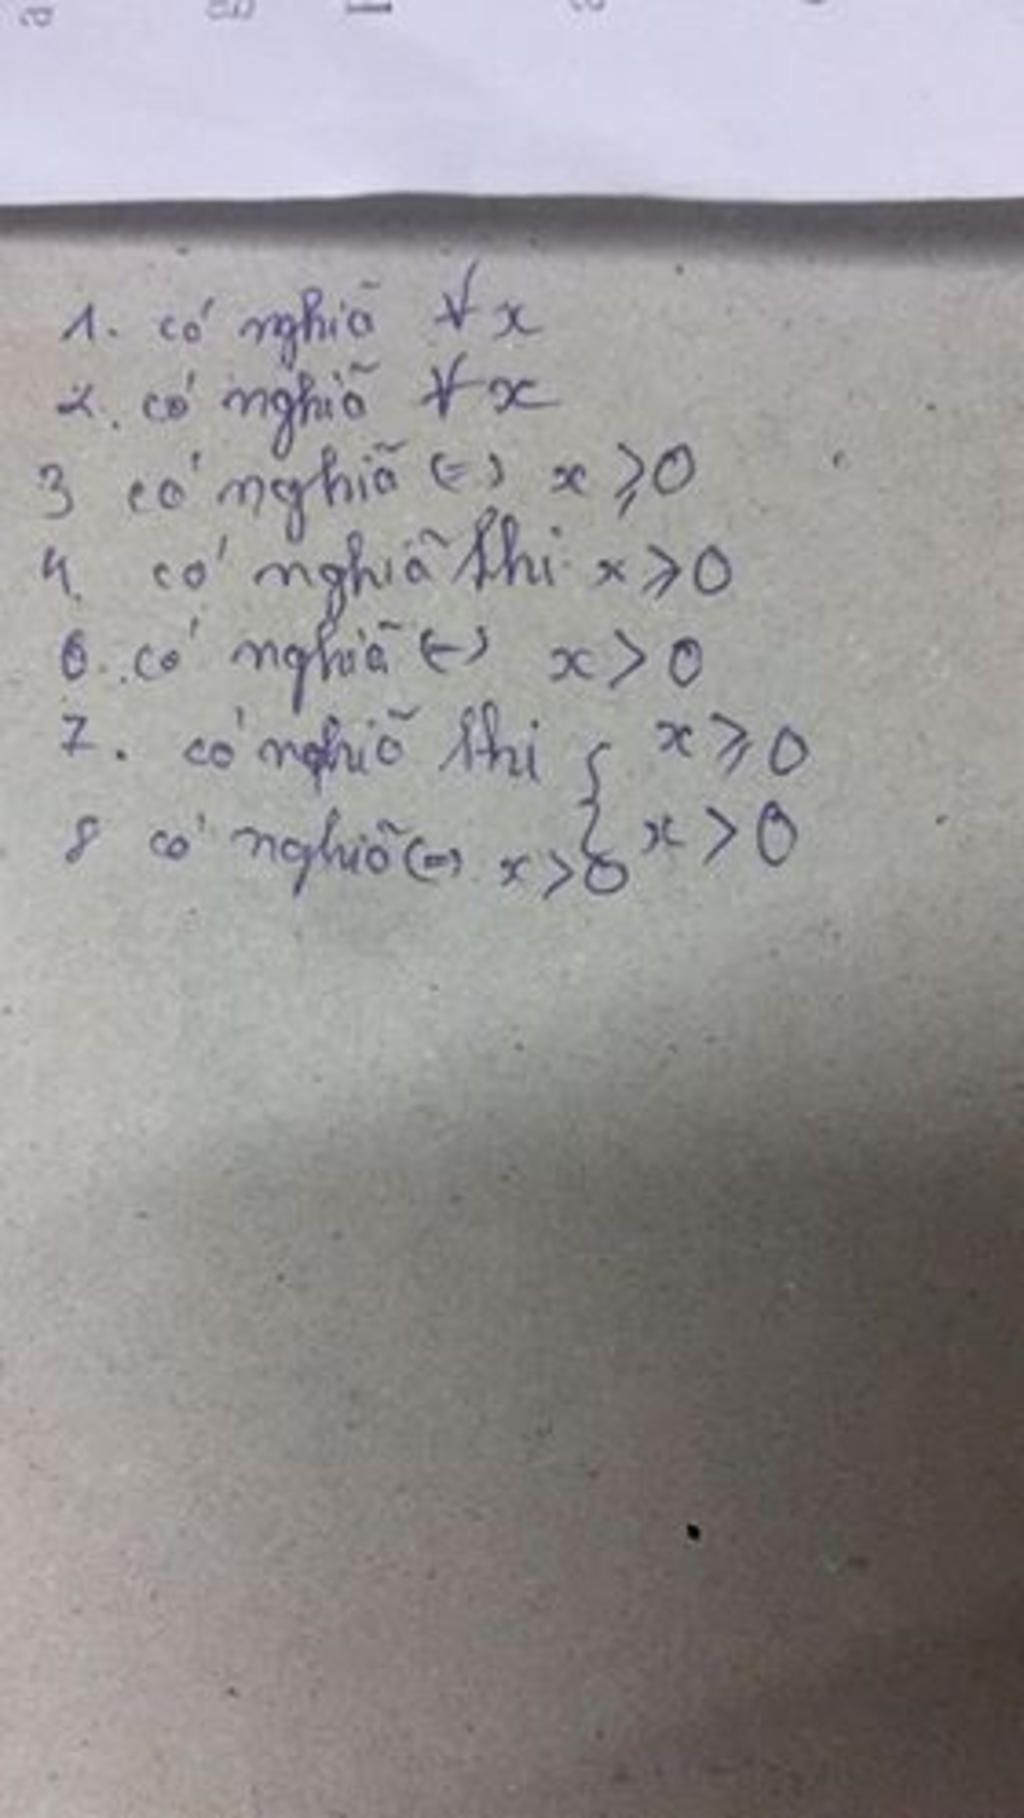 1. có nghĩa ∀ x
2. có nghĩa ∀ x
3 có nghĩa (=) x ⩾ 0
4 có nghĩa khi x ⩾ 0
6. có nghĩa (=) x > 0
7. có nghĩa khi { x ⩾ 0
x > 0
8 có nghĩa (=) x > 0